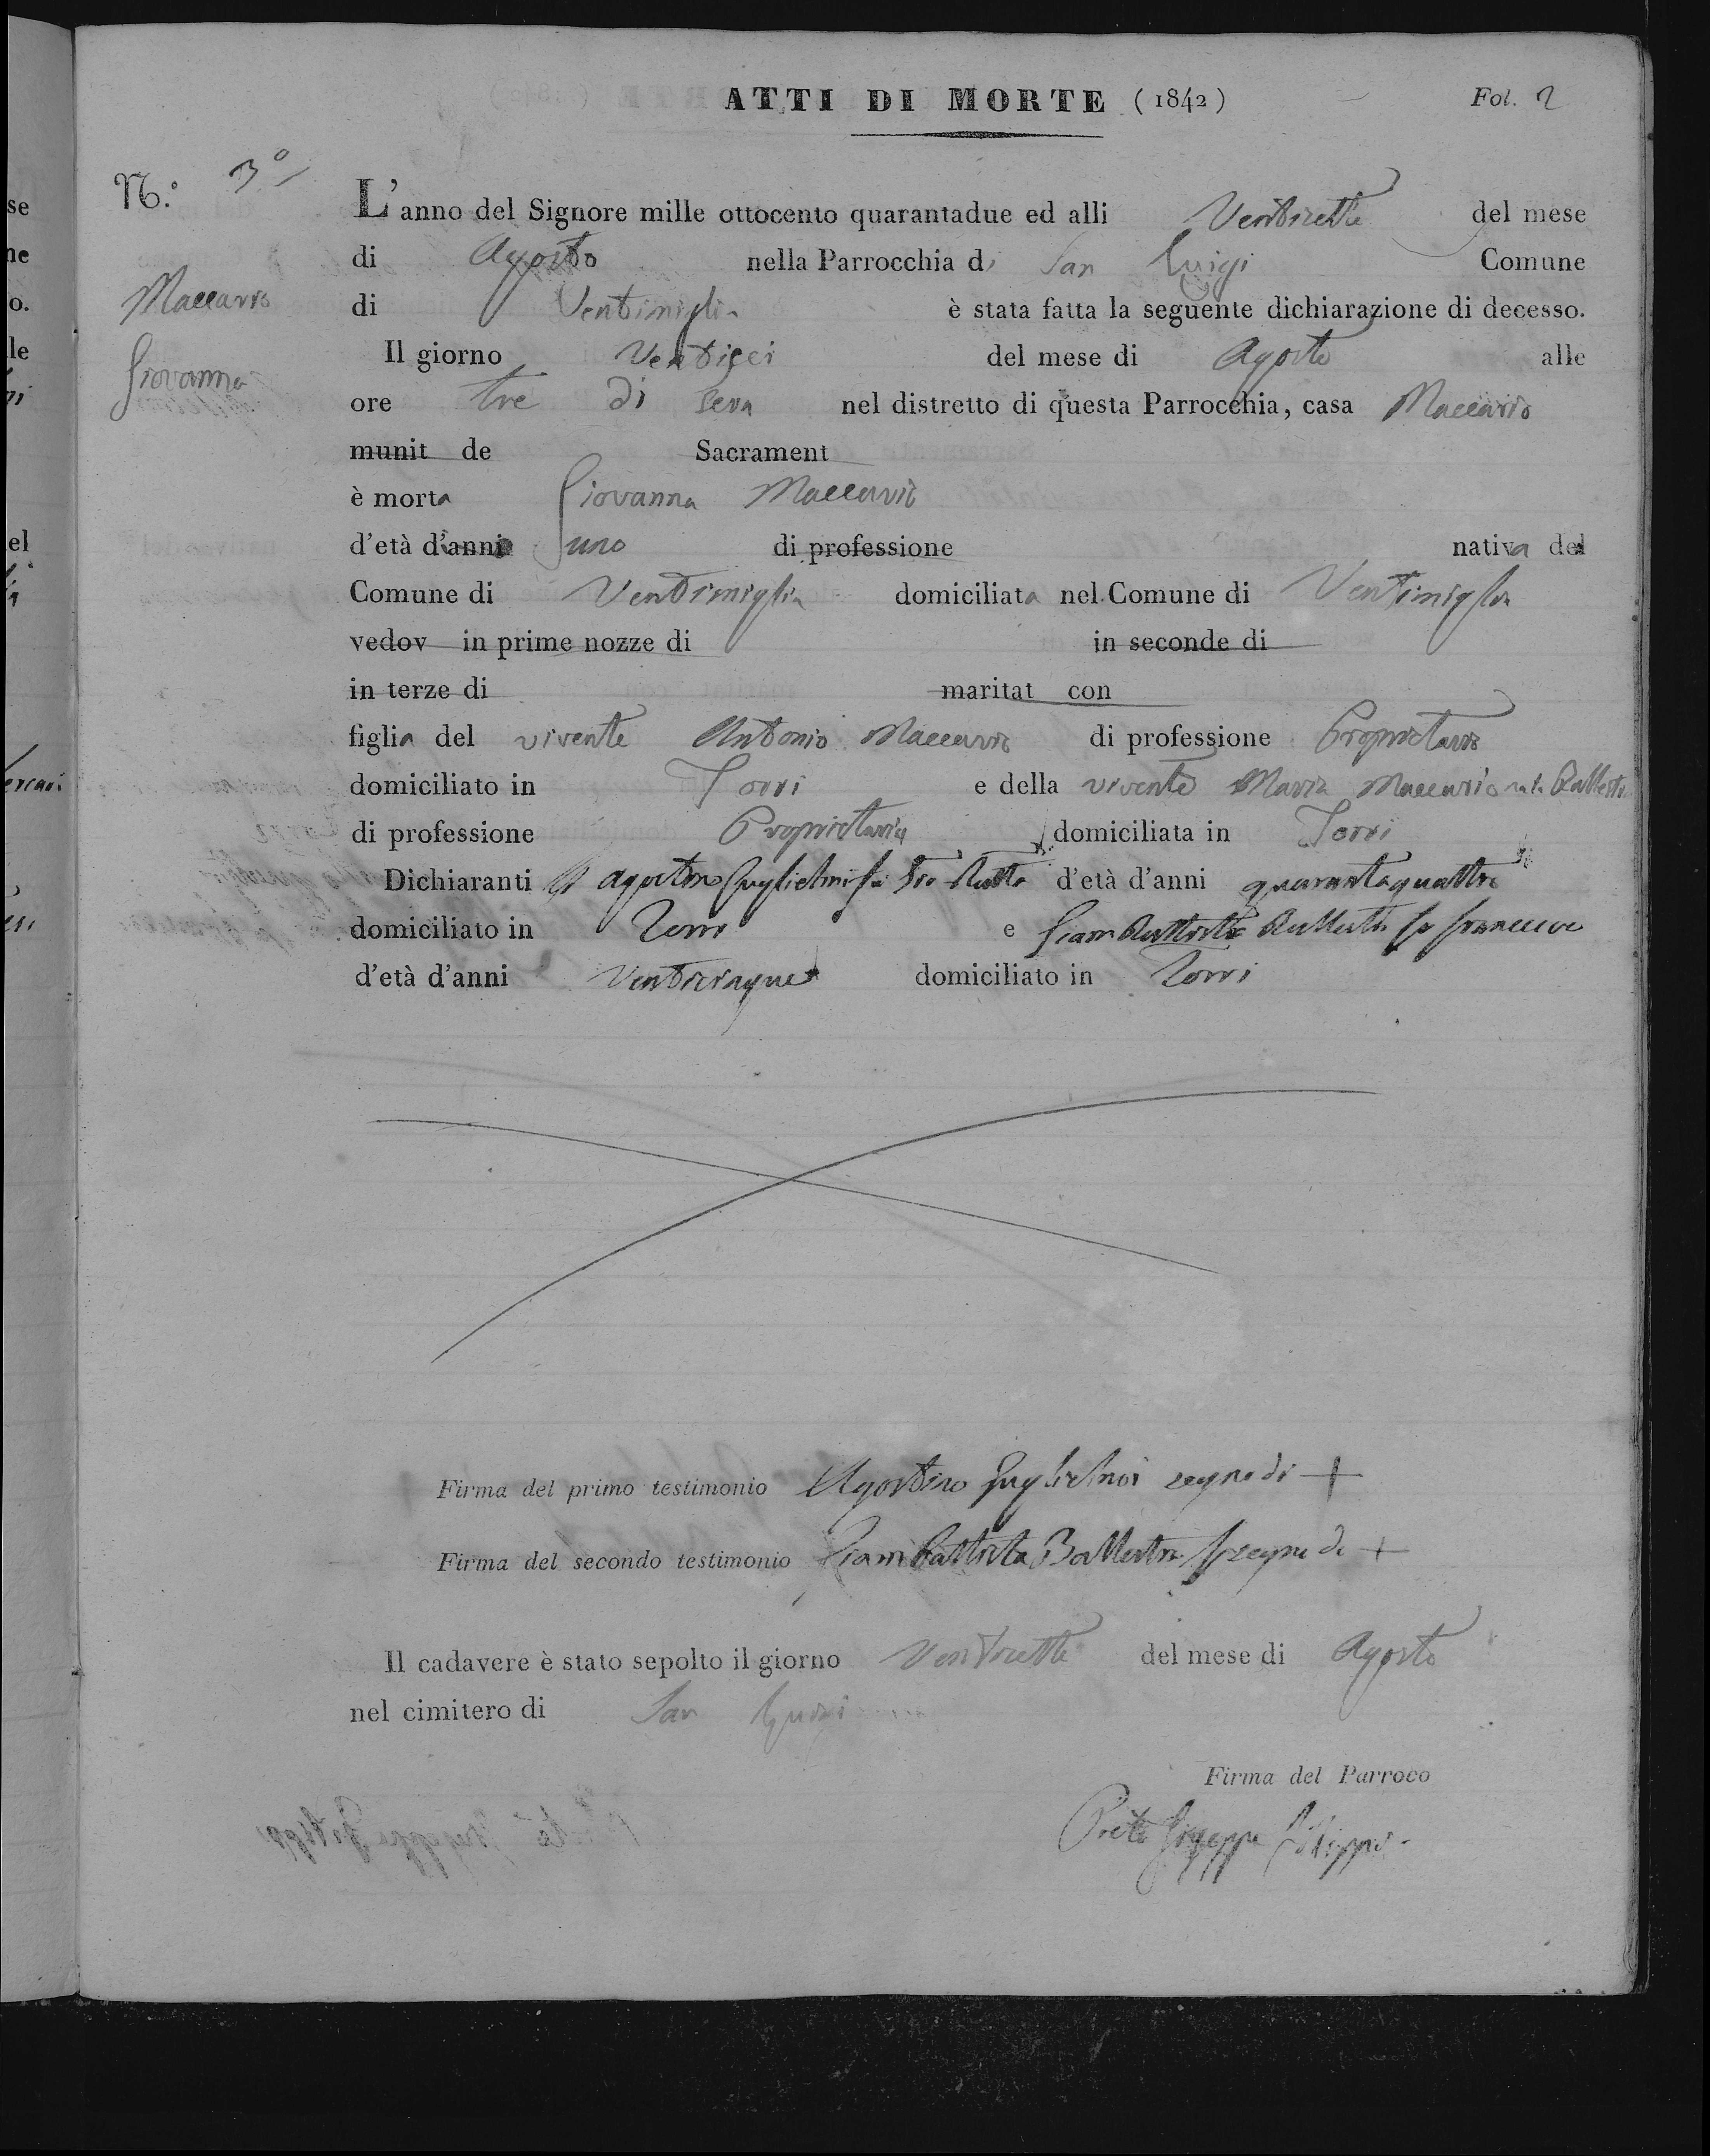 ATTI DI MORTE (1842) Fol. 2
N.º 3º
L'anno del Signore mille ottocento quarantadue ed alli Ventisette del mese
di Agosto nella Parrocchia di San Luigi Comune
Maccario
di Ventimiglia è stata fatta la seguente dichiarazione di decesso.
Il giorno Ventisei del mese di Agosto alle
Giovanna
ore tre di sera nel distretto di questa Parrocchia, casa Maccario
munit de Sacrament
è morta Giovanna Maccario
d'età d'anni uno di professione nativa del
Comune di Ventimiglia domiciliata nel Comune di Ventimiglia
vedov in prime nozze di in seconde di
in terze di maritat con
figlia del vivente Antonio Maccario di professione Proprietario
domiciliato in Torri e della vivente Maria Maccario nata Ballestra
di professione Proprietaria domiciliata in Torri
Dichiaranti Agostino Guglielmi fu Gio Batta d'età d'anni quarantaquattro
domiciliato in Torri e Giam Battista Ballestra fu Francesco
d'età d'anni Venticinque domiciliato in Torri
Firma del primo testimonio Agostino Guglielmi segno di +
Firma del secondo testimonio Giambattista Ballestra segno di +
Il cadavere è stato sepolto il giorno Ventisette del mese di Agosto
nel cimitero di San Luigi
Firma del Parroco
Prete Giuseppe Filippi